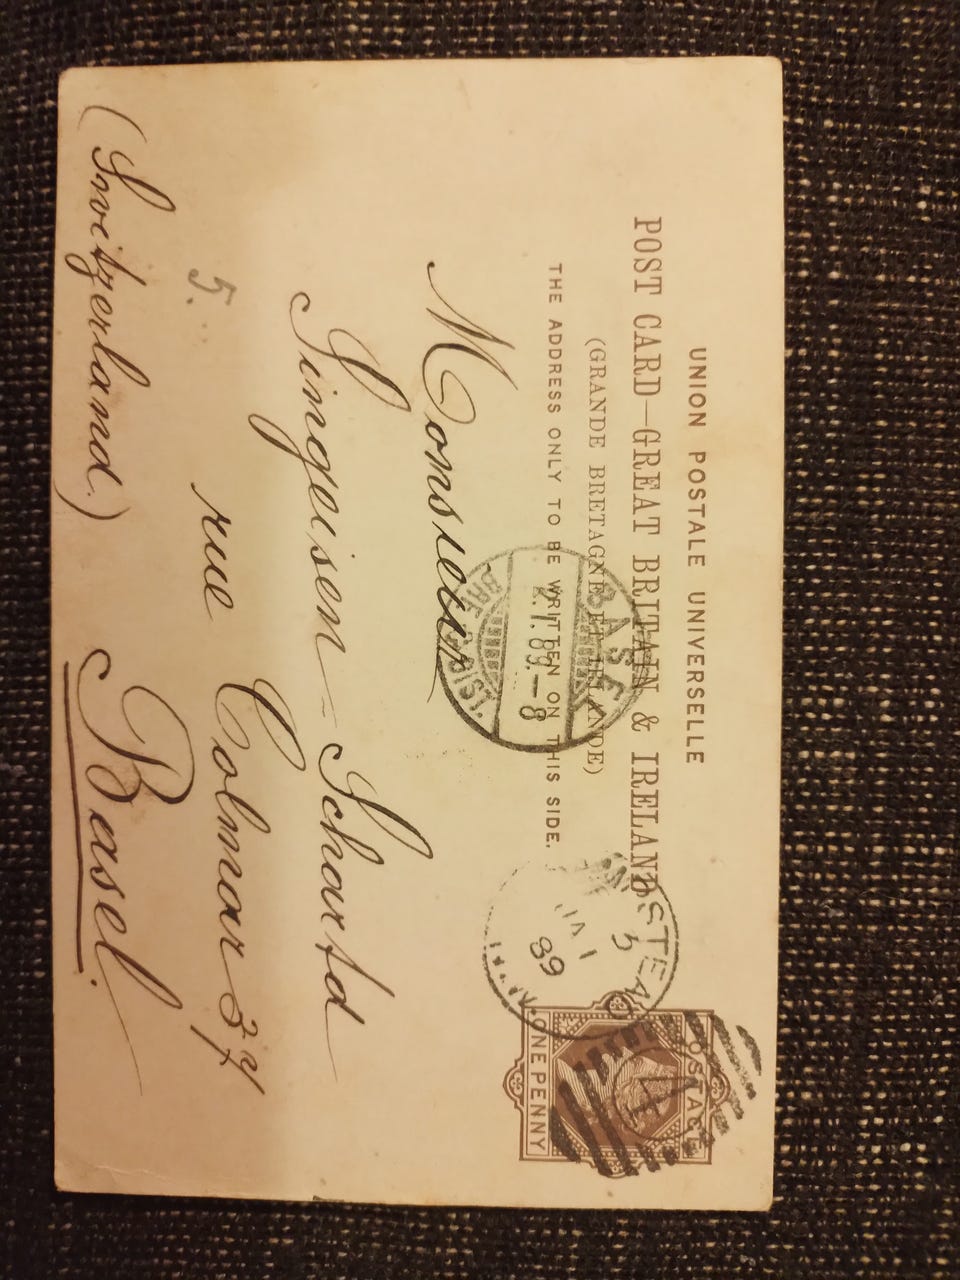 UNION POSTALE UNIVERSELLE
POST CARD—GREAT BRITAIN & IRELAND
(GRANDE BRETAGNE ET IRLANDE)
THE ADDRESS ONLY TO BE WRITTEN ON THIS SIDE.
POSTAGE
ONE PENNY
5
JA 1
89
N.W.
BASEL
2.I.89.–8
Monsieur
Singeisen-Schartd
rue Colmar 37
5.
Basel.
(Switzerland.)